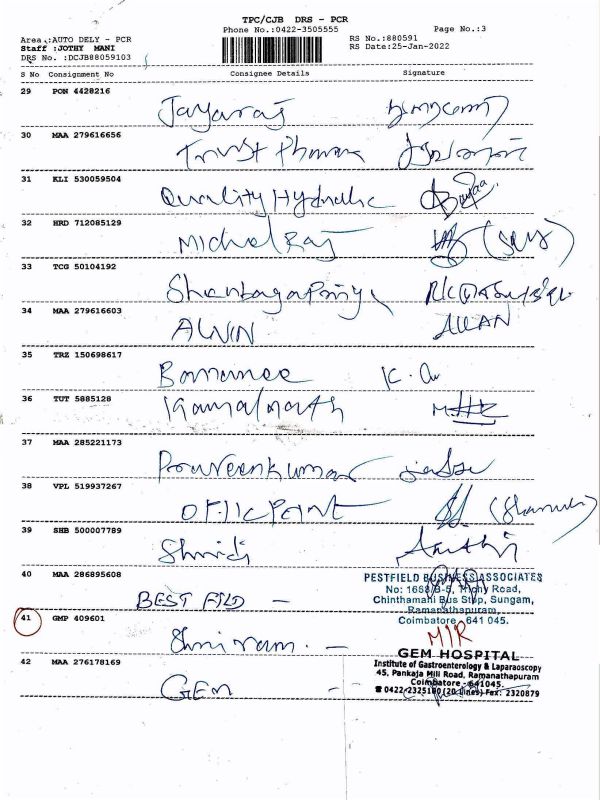 TPC/CJB DRS - PCR
Phone No.:0422-3505555 Page No.:3
Area :AUTO DELY - PCR RS No.:880591
Staff :JOTHY MANI RS Date:25-Jan-2022
DRS No. :DCJB88059103
S No Consignment No Consignee Details Signature
29 PON 4428216
Jayaraj
30 MAA 279616656
Trust Pharma
31 KLI 530059504
Quality Hydraulic
32 HRD 712085129
Michael Raj
33 TCG 50104192
Shenbagapriya
34 MAA 279616603
ALVIN
35 TRZ 150698617
K.
36 TUT 5885128
Kamalnath
37 MAA 285221173
Praveenkumar
38 VPL 519937267
OFFICPOINT
39 SHB 500007789
40 MAA 286895608
PESTFIELD BUSINESS ASSOCIATES
No: 166B/B-5, Trichy Road,
Chinthamani Bus Stop, Sungam,
Ramanathapuram,
Coimbatore - 641 045.
BEST FILD -
41 GMP 409601
Shriram -
MJR
GEM HOSPITAL
Institute of Gastroenterology & Laparaoscopy
45, Pankaja Mill Road, Ramanathapuram
Coimbatore - 641045.
☎ 0422-2325100 (20 Lines) Fax: 2320879
42 MAA 276178169
GEM -